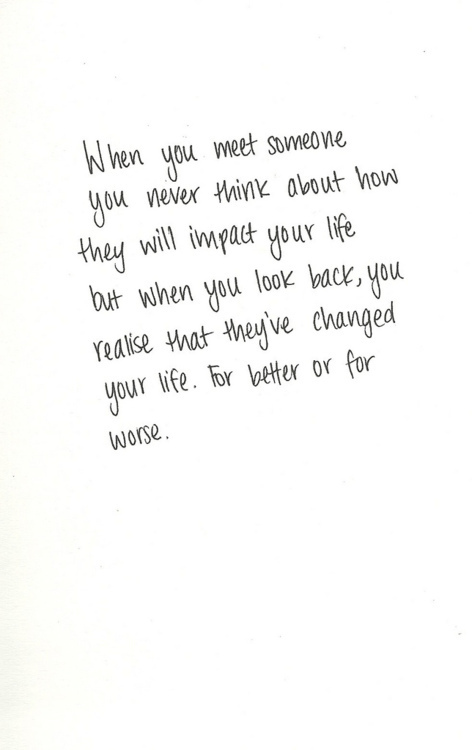 When you meet someone
you never think about how
they will impact your life
but when you look back, you
realise that they've changed
your life. For better or for
worse.